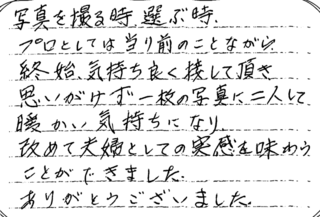 写真を撮る時、選ぶ時、
プロとしては当り前のことながら
終始、気持ち良く接して頂き
思いがけず一枚の写真に二人して、
暖かい気持ちになり
改めて夫婦としての実感を味わう
ことができました。
ありがとうございました。